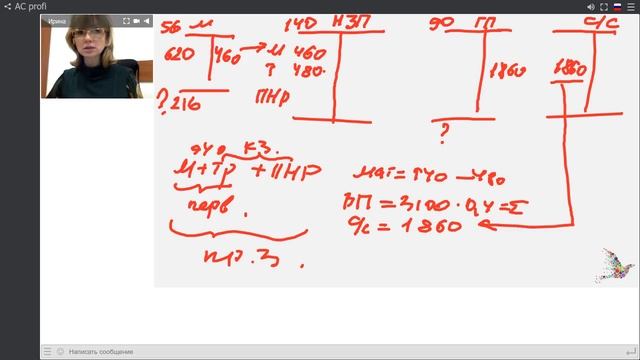 AC profi
Ирина
56 М 140 НЗП 90 ГП С/С
620 460 → М 460
Т 480. 1860 1860
? 216 ПНР ?
940 КЗ.
М+Тр + ПНР
перв.
пр. З.
Мат = 940 - 480
ВП = 3100 · 0,4 = Σ
С/с = 1860
Написать сообщение